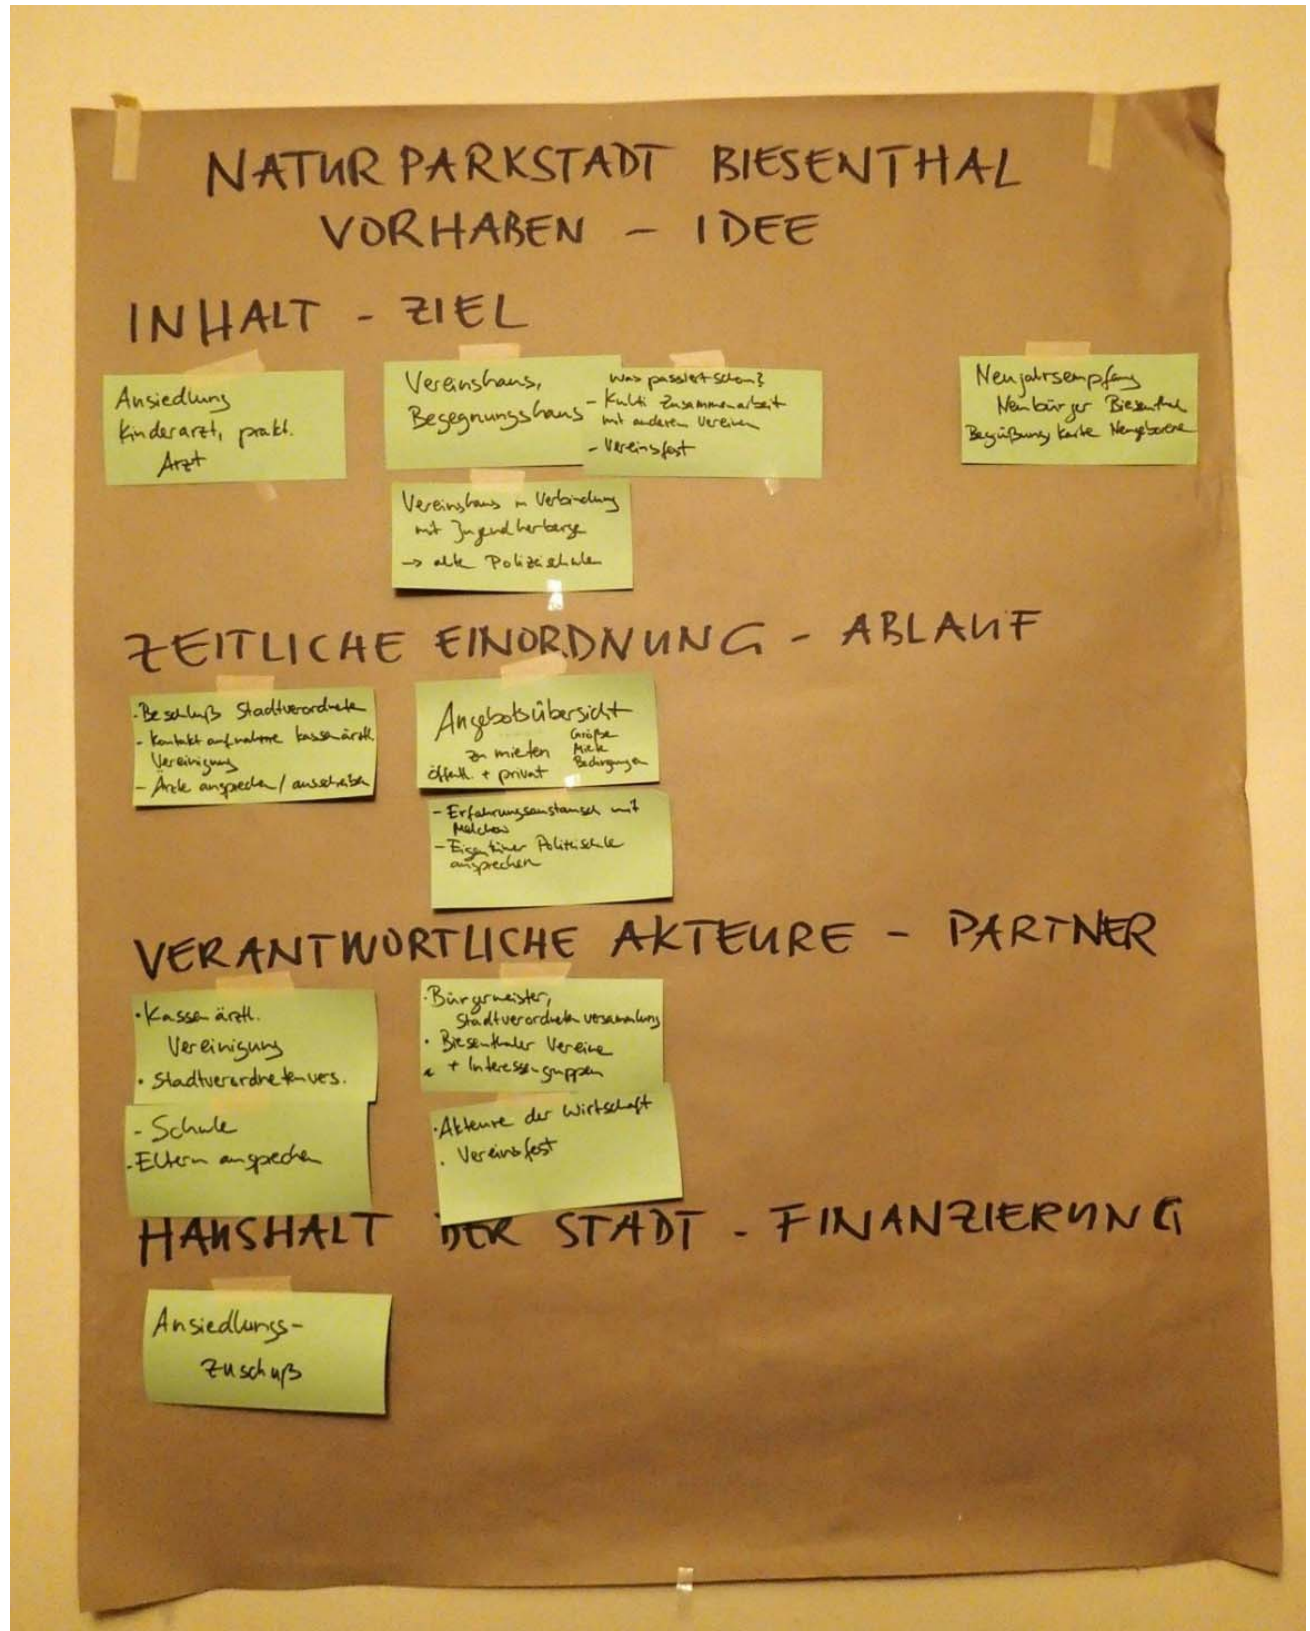 NATURPARKSTADT BIESENTHAL
VORHABEN – IDEE
INHALT - ZIEL
Ansiedlung
Kinderarzt, prakt.
Arzt
Vereinshaus,
Begegnungshaus
Was passiert schon?
- Kulti Zusammenarbeit
mit anderen Vereinen
- Vereinsfest
Neujahrsempfang
Neubürger Biesenthal
Begüßungskarte Neugeborene
Vereinshaus in Verbindung
mit Jugendherberge
→ alte Polizeischule
ZEITLICHE EINORDNUNG - ABLAUF
- Beschluß Stadtverordnete
- Kontaktaufnahme kassenärztl.
Vereinigung
- Ärzte ansprechen / ausschreiben
Angebotsübersicht
zu mieten
öffentl. + privat
Größe
Miete
Bedingungen
- Erfahrungsaustausch mit
Melchow
- Eigentümer
ansprechen
VERANTWORTLICHE AKTEURE - PARTNER
• Kassenärztl.
Vereinigung
• Stadtverordnetenvers.
- Schule
- Eltern ansprechen
• Bürgermeister,
Stadtverordnetenversammlung
• Biesenthaler Vereine
+ Interessengruppen
• Akteure der Wirtschaft
• Vereinsfest
HAUSHALT DER STADT - FINANZIERUNG
Ansiedlungs-
zuschuß